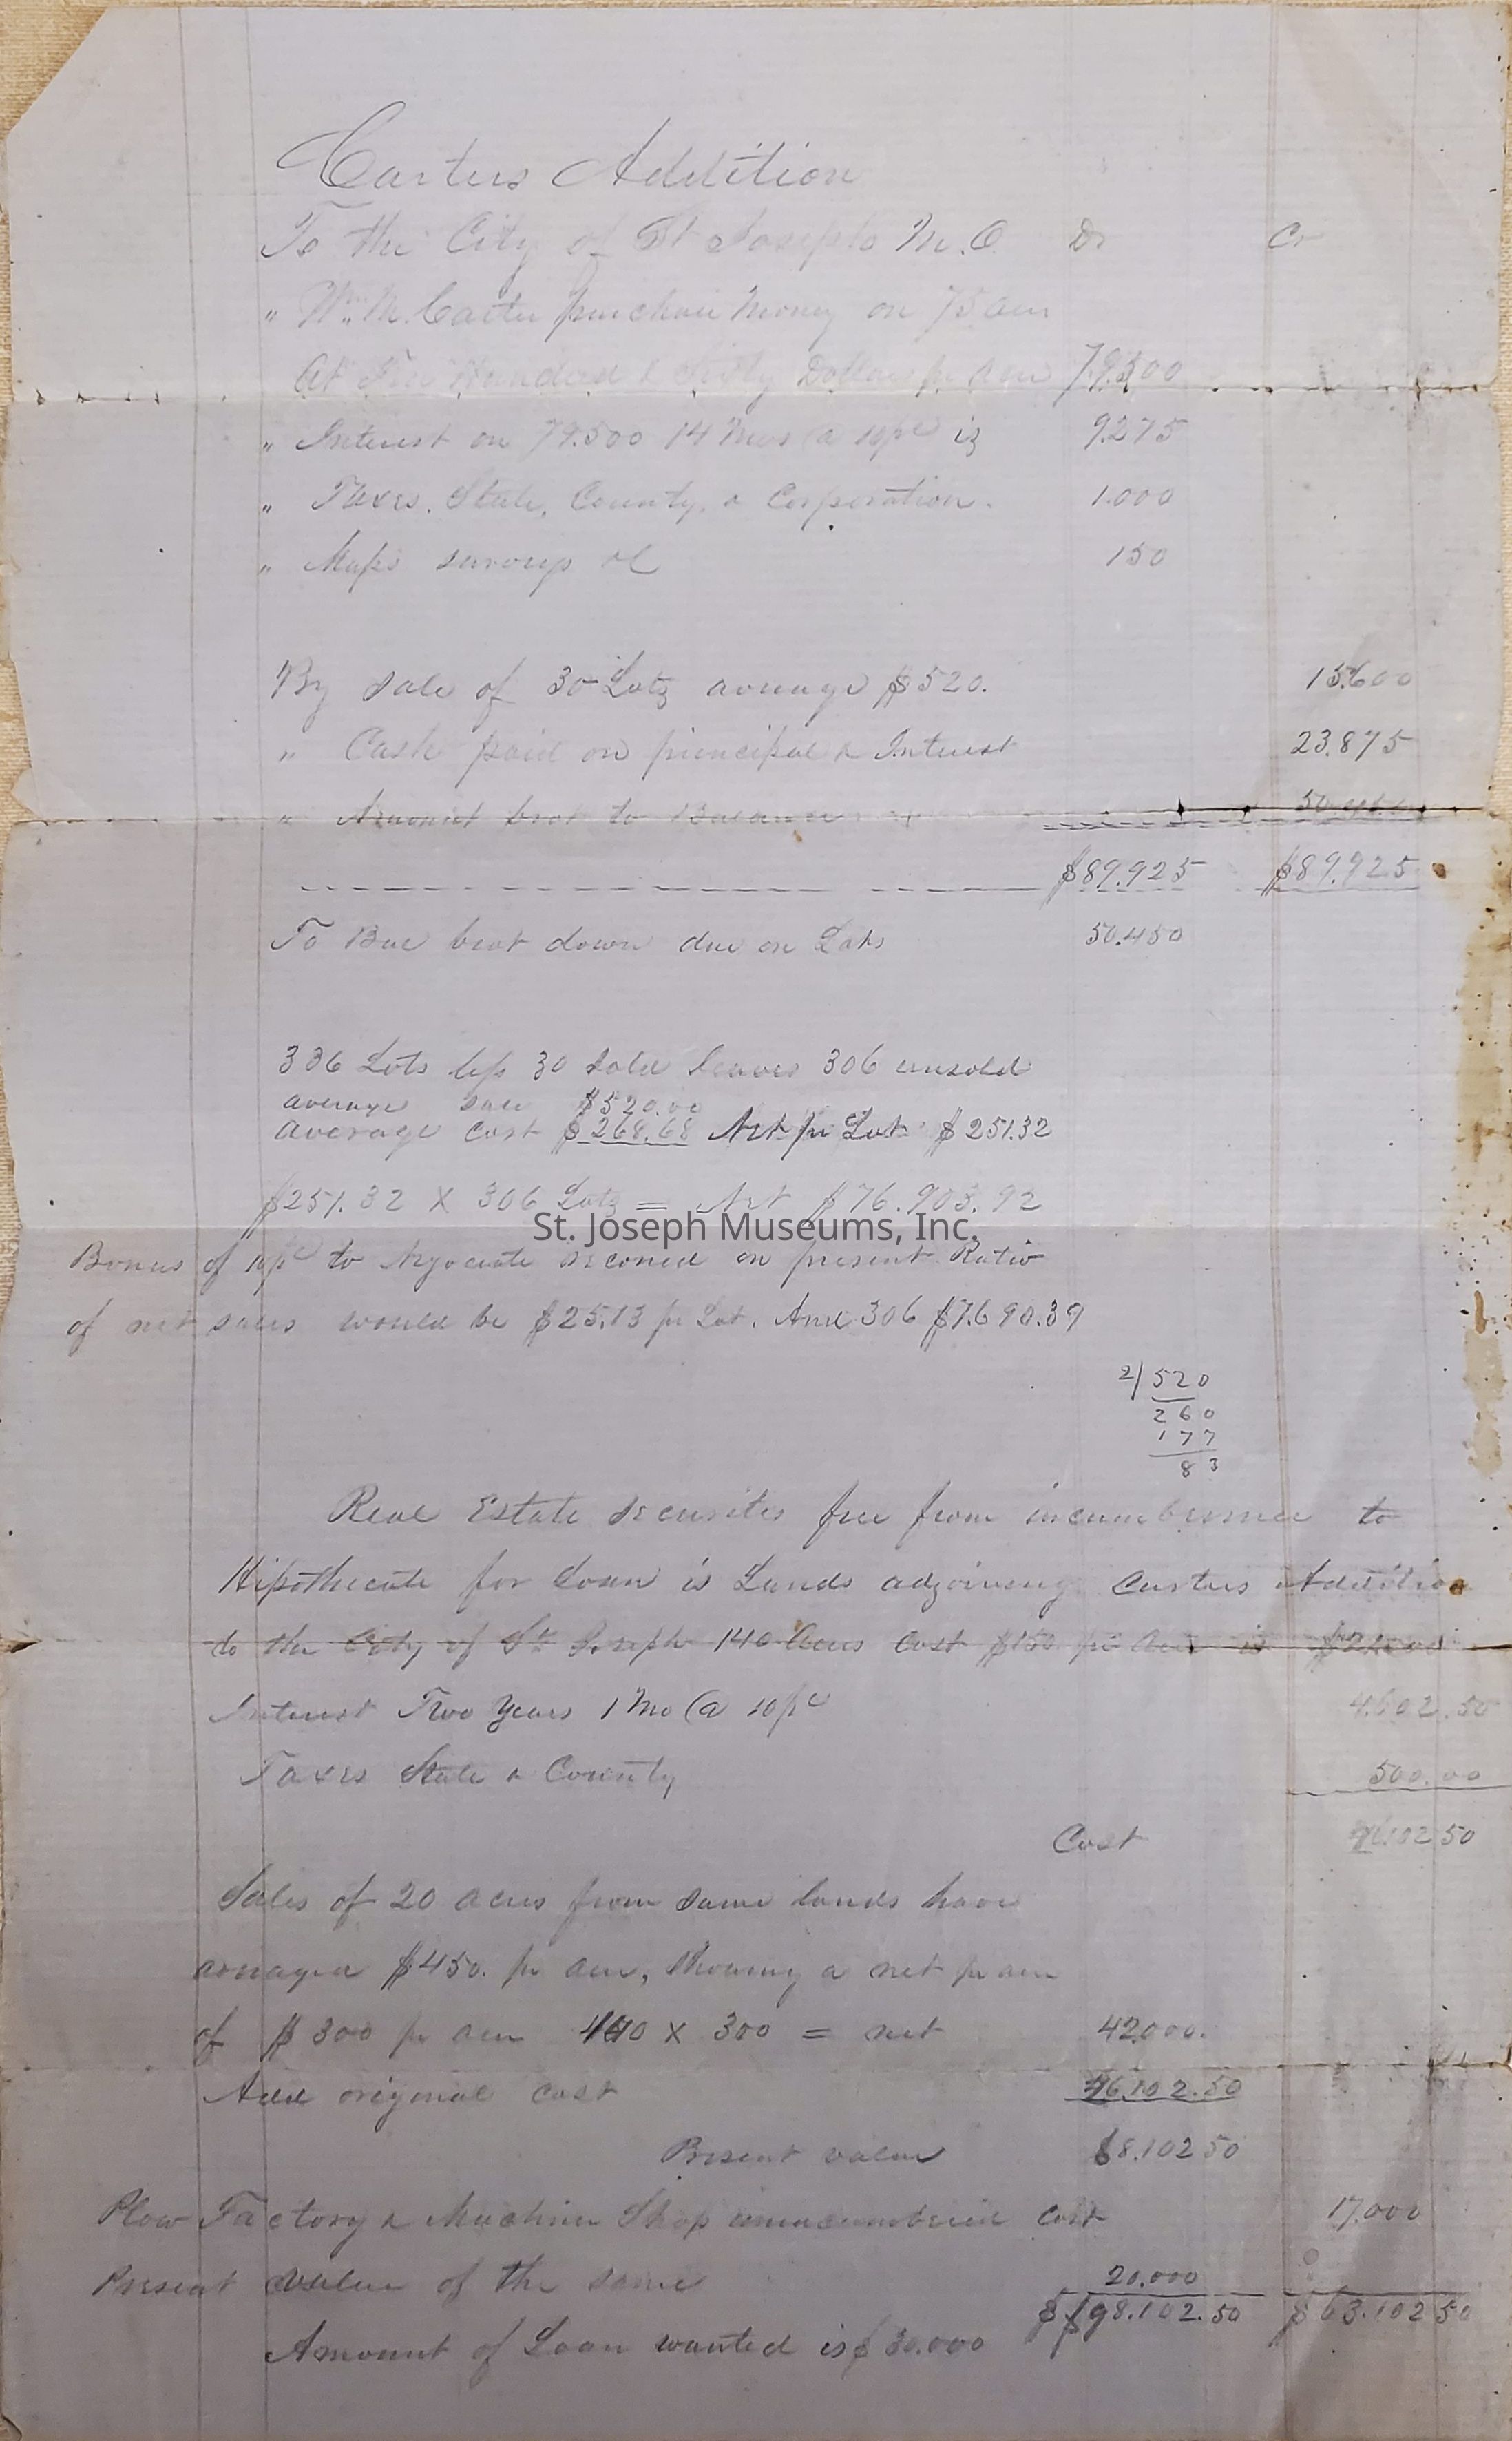 Carters Addition
To the City of St Joseph M.O. Dr Cr
" Wm. M. Carter purchase Money on 75 acres
At Hundred & Sixty Dollars pr Acre 79.500
" Interest on 79.500 14 Mos @ 10pc is 9.275
" Taxes, State, County, & Corporation. 1.000
" Maps surveys &c 150
By sale of 30 Lots average $520. 15.600
" Cash paid on principal & Interest 23.875
" Amount brot to Balance 50.450
$89.925 $89.925
To Bal brot down due on Lots 50.450
336 Lots less 30 sold leaves 306 unsold
average sale $520.00
average cost $268.68 Net pr Lot $251.32
$251.32 X 306 Lots = Net $76.903.92
St. Joseph Museums, Inc.
Bonus of 10pc to Negociate reconed on present Ratio
of net sales would be $25.13 pr Lot. And 306 $7.690.39
2/520
260
177
83
Real Estate securites free from incumbrance to
Hipothecate for Loan is Lands adjoining Carters Addition
to the City of St Joseph 140 Acres Cost $150 pr Acre is
Interest Two Years 1 Mo @ 10pc 4.602.50
Taxes State & County 500.00
Cost 26.102 50
Sales of 20 acres from same lands have
averaged $450. pr acre, Showing a net pr acre
of $300 pr acre 140 X 300 = net 42.000.
Add original cost 26.102.50
Present value 68.102 50
Plow Factory & Machine Shop unincumbered Cost 17.000
Present value of the same 20.000
$ 98.102.50 $63.102 50
Amount of Loan wanted is $30.000